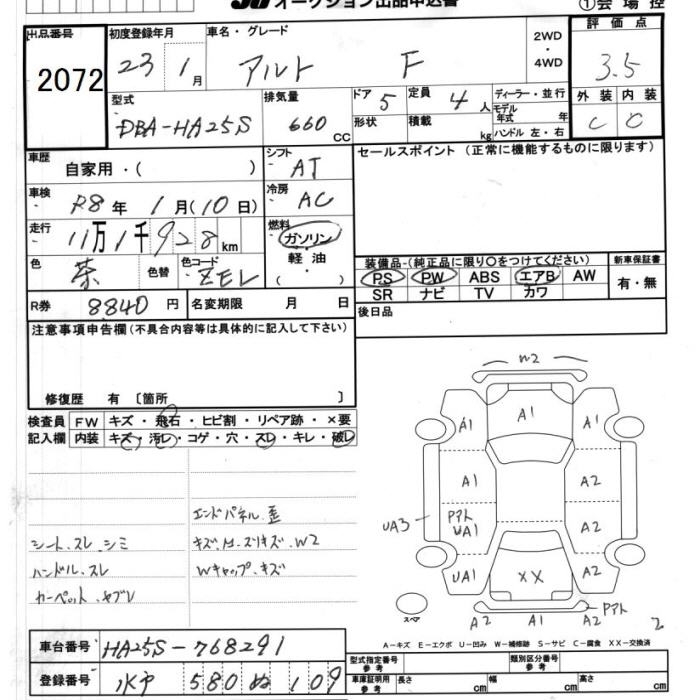 オークション出品申込書
①会場控
出品番号
2072
初度登録年月
23 1月
車名・グレード
アルト F
2WD
・
4WD
評価点
3.5
型式
DBA-HA25S
排気量
660 CC
ドア 5
形状
定員 4 人
積載 kg
ディーラー・並行
モデル年式 年
ハンドル 左・右
外装 内装
C C
車歴
自家用・( )
シフト
AT
セールスポイント(正常に機能するものに限ります)
車検
R8 年 1月(10日)
冷房
AC
走行
11万1千928km
燃料
ガソリン
軽油
( )
色
茶
色替
色コード
ZEL
装備品-(純正品に限り○をつけてください)
新車保証書
PS PW ABS エアB AW
有・無
SR ナビ TV カワ
R券 8840 円
名変期限 月 日
後日品
注意事項申告欄(不具合内容等は具体的に記入して下さい)
修復歴 有 〔箇所 〕
検査員
記入欄
FW キズ・飛石・ヒビ割・リペア跡・×要
内装 キズ・汚レ・コゲ・穴・スレ・キレ・破レ
エンドパネル.歪
シート.スレ.シミ
W2
ハンドル.スレ
Wキャップ.キズ
カーペット.ヤブレ
W2
A1 A1
A1 A2
UA3
A2
UA1 XX A2
スペア
A2 A1 A2
2
A-キズ E-エクボ U-凹み W-補修跡 S-サビ C-腐食 XX-交換済
車台番号 HA25S-768291
登録番号 水戸 580 ぬ 109
型式指定番号
参考
類別区分番号
参考
車庫証明用
参考
長さ cm 幅 cm 高さ cm